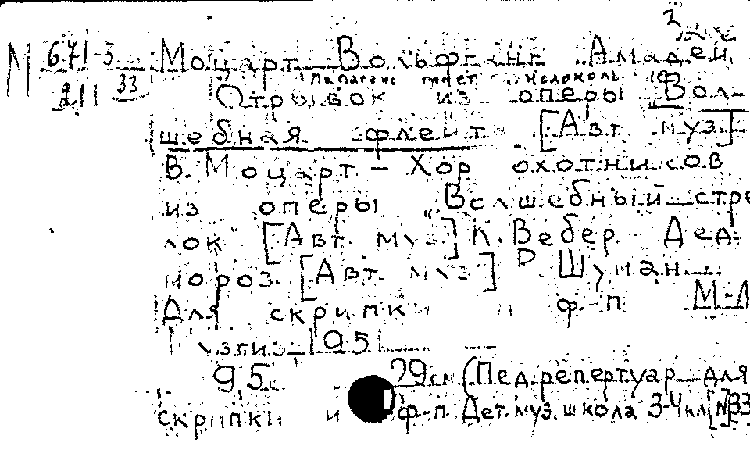 3 экз
М 671-3 Моцарт Вольфганг Амадей
2/1 33 Папагено колоколь
Отрывок из оперы Вол-
шебная флейта [Авт. муз.]
В. Моцарт – Хор охотников
из оперы "Волшебный стре
лок" [Авт. муз.] К. Вебер. Дед-
мороз. [Авт. муз.] Р. Шуман.
Для скрипки и ф-п М-Л
Музгиз 1951
9 с. 29 см (Пед. репертуар для
скрипки и ф-п. Дет. муз. школа 3-4 кл) [N 33